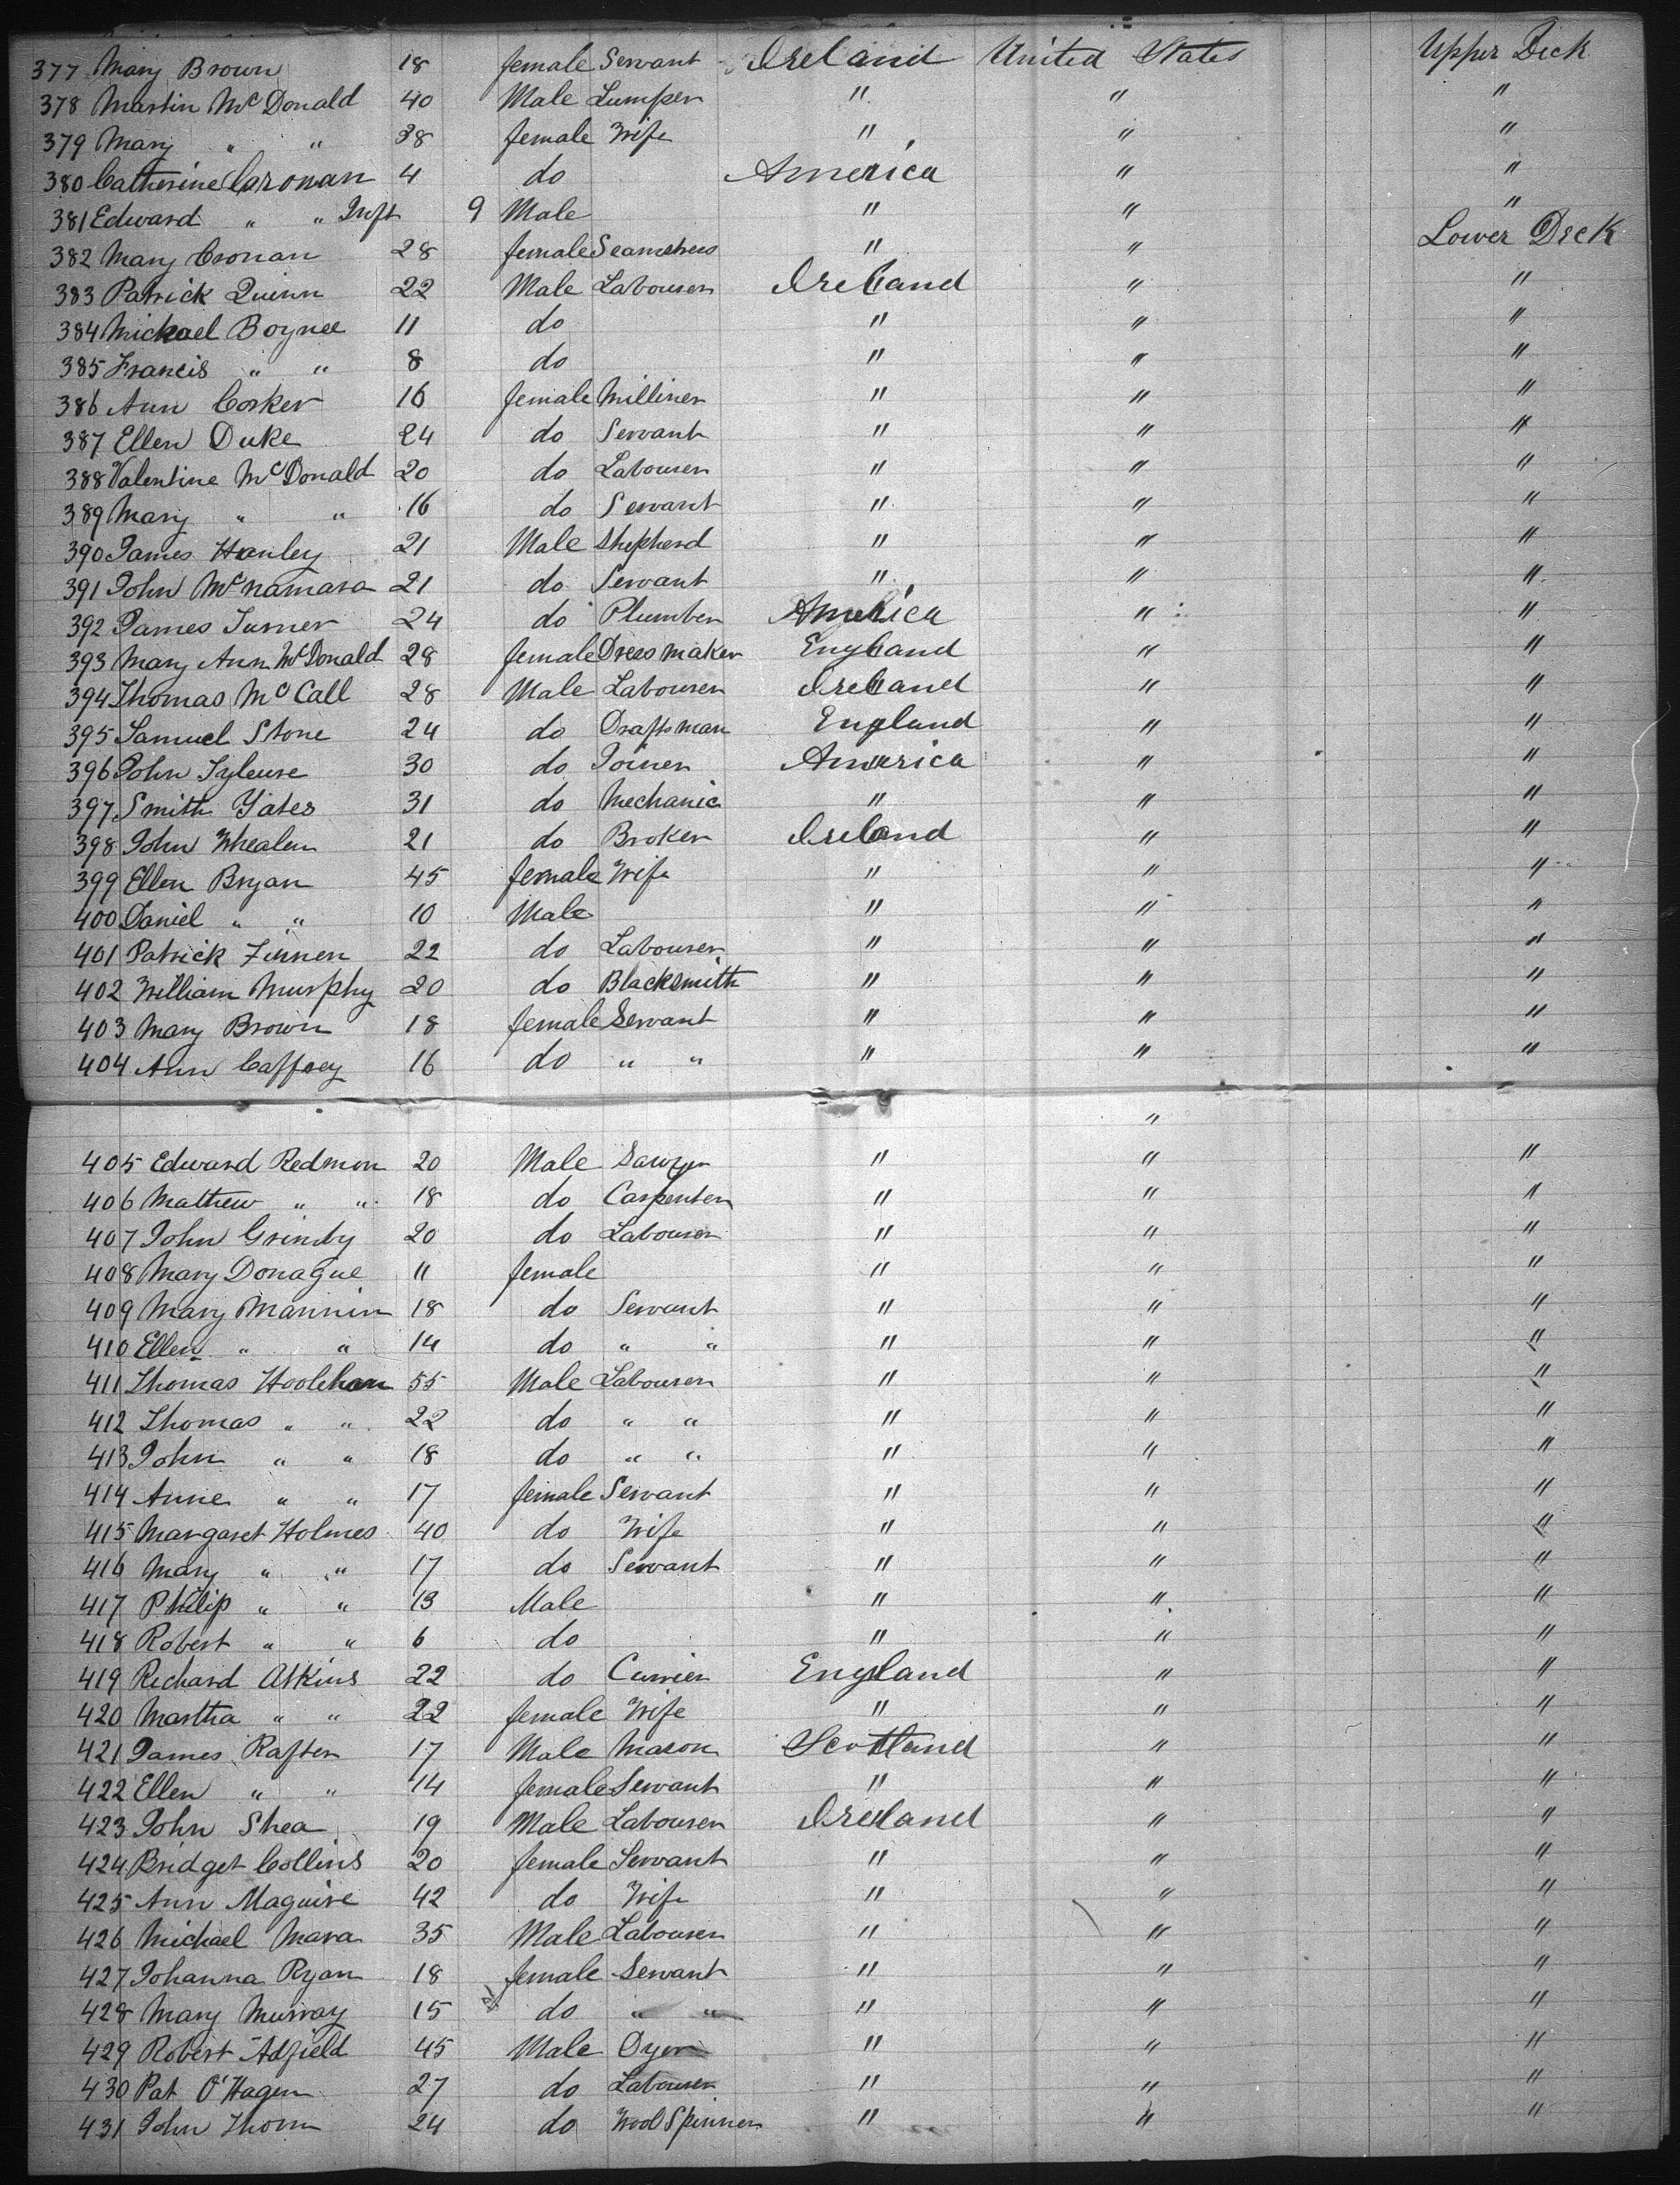 377 Mary Brown 18 female Servant Ireland United States Upper Deck
378 Martin McDonald 40 Male Lumper " " "
379 Mary " " 38 female Wife " " "
380 Catherine Cronan 4 do America " "
381 Edward " " Inft 9 Male " " "
382 Mary Cronan 28 female Seamstress " " Lower Deck
383 Patrick Quinn 22 Male Labourer Ireland " "
384 Michael Boynee 11 do " " "
385 Francis " " 8 do " " "
386 Ann Corker 16 female Milliner " " "
387 Ellen Duke 24 do Servant " " "
388 Valentine McDonald 20 do Labourer " " "
389 Mary " " 16 do Servant " " "
390 James Hanley 21 Male Shepherd " " "
391 John McNamara 21 do Servant " " "
392 James Turner 24 do Plumber America " "
393 Mary Ann McDonald 28 female Dress maker England " "
394 Thomas McCall 28 Male Labourer Ireland " "
395 Samuel Stone 24 do Draftsman England " "
396 John 30 do Joiner America " "
397 Smith Yates 31 do Mechanic " " "
398 John Whealen 21 do Broker Ireland " "
399 Ellen Bryan 45 female Wife " " "
400 Daniel " " 10 Male " " "
401 Patrick Finnen 22 do Labourer " " "
402 William Murphy 20 do Blacksmith " " "
403 Mary Brown 18 female Servant " " "
404 Ann Caffrey 16 do " " " " "
"
405 Edward Redmon 20 Male Sawyer " " "
406 Mathew " " 18 do Carpenter " " "
407 John Grimby 20 do Labourer " " "
408 Mary Donague 11 female " " "
409 Mary Mannin 18 do Servant " " "
410 Ellen " " 14 do " " " " "
411 Thomas Hoolehan 55 Male Labourer " " "
412 Thomas " " 22 do " " " " "
413 John " " 18 do " " " " "
414 Anne " " 17 female Servant " " "
415 Margaret Holmes 40 do Wife " " "
416 Mary " " 17 do Servant " " "
417 Philip " " 13 Male " " "
418 Robert " " 6 do " " "
419 Richard Atkins 22 do Currier England " "
420 Martha " " 22 female Wife " " "
421 James Rafter 17 Male Mason Scotland " "
422 Ellen " " 14 female Servant " " "
423 John Shea 19 Male Labourer Ireland " "
424 Bridget Collins 20 female Servant " " "
425 Ann Maguire 42 do Wife " " "
426 Michael Mara 35 Male Labourer " " "
427 Johanna Ryan 18 female Servant " " "
428 Mary Murray 15 do " " " " "
429 Robert Adfield 45 Male Dyer " " "
430 Pat O'Hagen 27 do Labourer " " "
431 John Thom 24 do Wool Spinner " " "